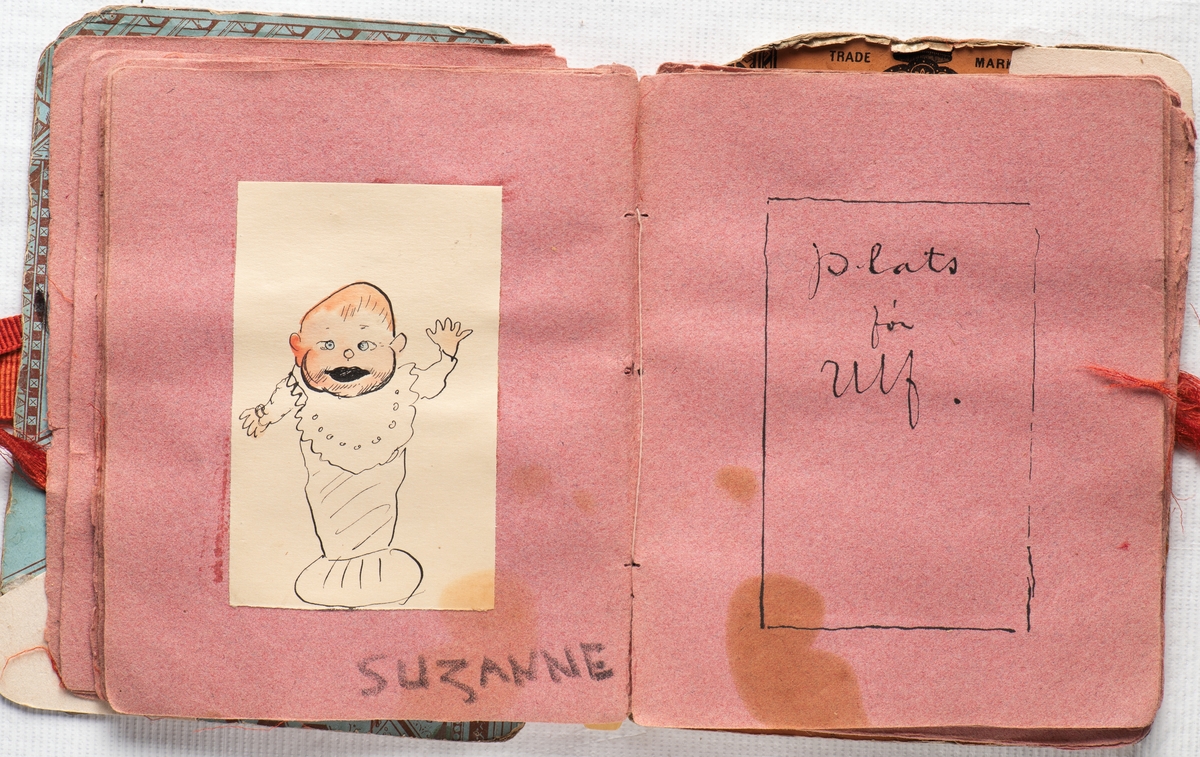 TRADE MARK
SUZANNE
plats
för
Ulf.